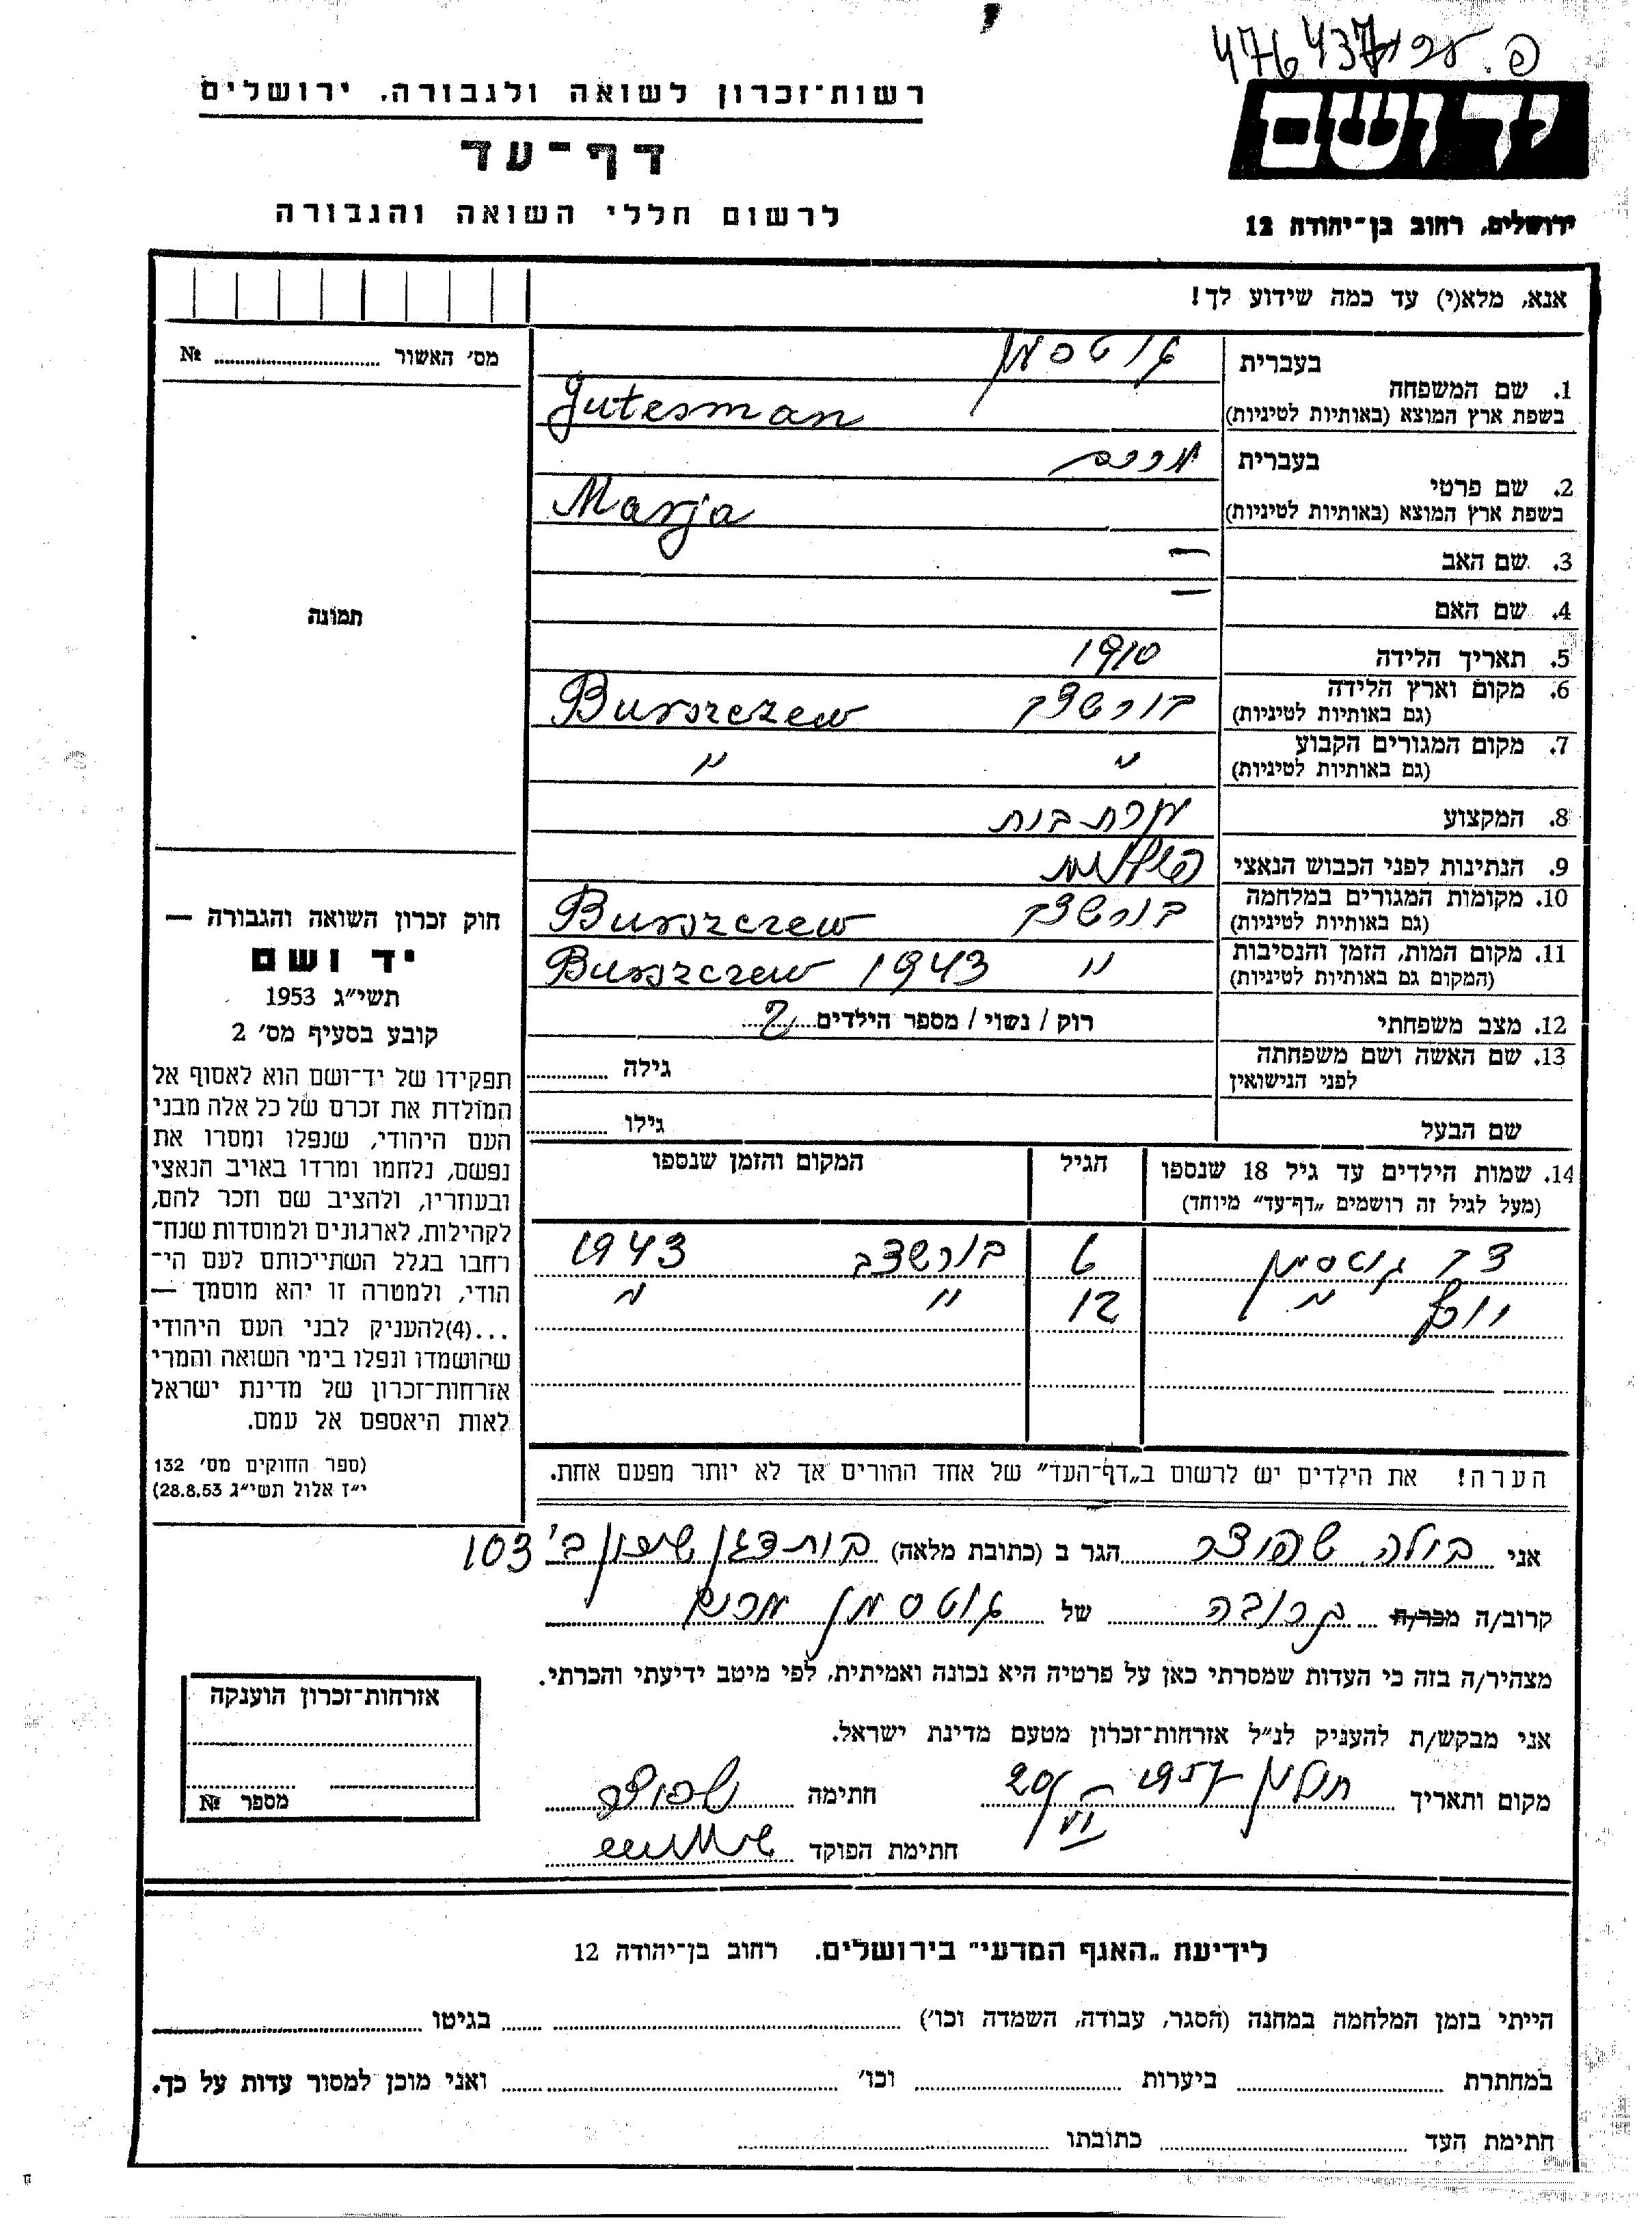 476437
רשות־זכרון לשואה ולגבורה, ירושלים
דף־עד
לרשום חללי השואה והגבורה
יד ושם
ירושלים, רחוב בן־יהודה 12
אנא, מלא(י) עד כמה שידוע לך!
מס׳ האשור № ....................
תמונה
1. שם המשפחה בעברית גוטסמן
בשפת ארץ המוצא (באותיות לטיניות) Gutesman
2. שם פרטי בעברית מרים
בשפת ארץ המוצא (באותיות לטיניות) Marja
3. שם האב —
4. שם האם —
5. תאריך הלידה 1910
6. מקום וארץ הלידה (גם באותיות לטיניות) בורשצב Burszczew
7. מקום המגורים הקבוע (גם באותיות לטיניות) " "
8. המקצוע עקרת בית
9. הנתינות לפני הכבוש הנאצי פולנית
10. מקומות המגורים במלחמה (גם באותיות לטיניות) בורשצב Burszczew
11. מקום המות, הזמן והנסיבות (המקום גם באותיות לטיניות) " 1943 Burszczew
12. מצב משפחתי רוק / נשוי / מספר הילדים 2
13. שם האשה ושם משפחתה לפני הנישואין גילה ............
שם הבעל גילו ............
14. שמות הילדים עד גיל 18 שנספו (מעל לגיל זה רושמים „דף־עד״ מיוחד) הגיל המקום והזמן שנספו
גוטסמן 6 בורשצב 1943
יוסף " 12 " "
הערה! את הילדים יש לרשום ב„דף־העד״ של אחד ההורים אך לא יותר מפעם אחת.
חוק זכרון השואה והגבורה —
יד ושם
תשי״ג 1953
קובע בסעיף מס׳ 2
תפקידו של יד־ושם הוא לאסוף אל
המולדת את זכרם של כל אלה מבני
העם היהודי, שנפלו ומסרו את
נפשם, נלחמו ומרדו באויב הנאצי
ובעוזריו, ולהציב שם וזכר להם,
לקהילות, לארגונים ולמוסדות שנח־
רחבו בגלל השתייכותם לעם הי־
הודי, ולמטרה זו יהא מוסמך —
...(4) להעניק לבני העם היהודי
שהושמדו ונפלו בימי השואה והמרי
אזרחות־זכרון של מדינת ישראל
לאות היאספם אל עמם.
(ספר החוקים מס׳ 132
י״ז אלול תשי״ג 28.8.53)
אני בילה שפוצר הגר ב (כתובת מלאה) בית דגן שיכון ב' 103
קרוב/ה מכר/ה קרובה של גוטסמן מרים
מצהיר/ה בזה כי העדות שמסרתי כאן על פרטיה היא נכונה ואמיתית, לפי מיטב ידיעתי והכרתי.
אני מבקש/ת להעניק לנ״ל אזרחות־זכרון מטעם מדינת ישראל.
מקום ותאריך 1957 20/VI חתימה
חתימת הפוקד
אזרחות־זכרון הוענקה
מספר №
לידיעת „האגף המדעי״ בירושלים, רחוב בן־יהודה 12
הייתי בזמן המלחמה במחנה (הסגר, עבודה, השמדה וכו׳) .................... בגיטו ....................
במחתרת .................... ביערות .................... וכו׳ .................... ואני מוכן למסור עדות על כך.
חתימת העד .................... כתובתו ....................